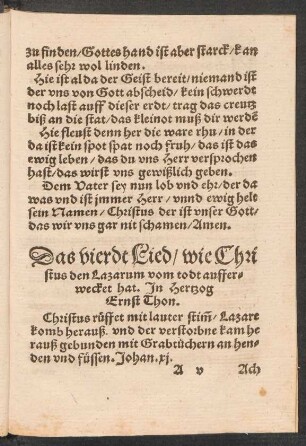 zu finden/Gottes hand ist aber starck/kan
alles sehr wol linden.
Hie ist al da der Geist bereit/niemand ist
der vns von Gott abscheid/kein schwerdt
noch last auff dieser erdt/trag das creutz
biß an die stat/das kleinot muß dir werdẽ
Hie fleust denn her die ware rhu/in der
da ist kein spot spat noch fruh/das ist das
ewig leben/das du vns Herr versprochen
hast/das wirst vns gewißlich geben.
Dem Vater sey nun lob vnd ehr/der da
was vnd ist jmmer Herr/vnnd ewig helt
sein Namen/Christus der ist vnser Gott/
das wir vns gar nit schamen/Amen.
Das vierdt Lied/wie Chri
stus den Lazarum vom todt aufferwe-
wecket hat. In Hertzog
Ernst Thon.
Christus rüffet mit lauter stim̃/Lazare
komb herauß. vnd der verstorbne kam he
rauß gebunden mit Grabtüchern an hen-
den vnd füssen. Johan.xj.
A v Ach